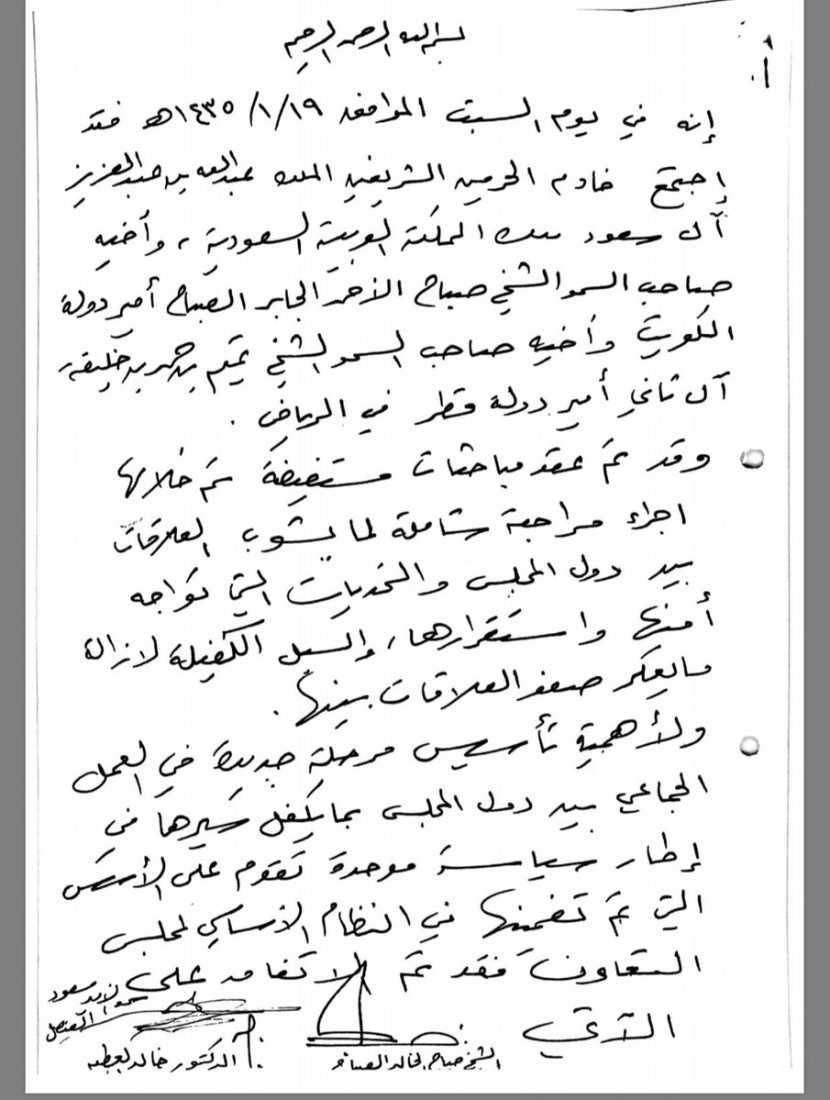 بسم الله الرحمن الرحيم
أ
إنه في يوم السبت الموافق ١٤٣٥/١/١٩هـ فقد
إجتمع خادم الحرمين الشريفين الملك عبدالله بن عبدالعزيز
آل سعود ملك المملكة العربية السعودية ، وأخيه
صاحب السمو الشيخ صباح الأحمد الجابر الصباح أمير دولة
الكويت وأخيه صاحب السمو الشيخ تميم بن حمد بن خليفة
آل ثاني أمير دولة قطر في الرياض .
وقد تم عقد مباحثات مستفيضة تم خلالها
اجراء مراجعة شاملة لما يشوب العلاقات
بين دول المجلس والتحديات التي تواجه
أمنها واستقرارها، والسبل الكفيلة لازالة
مايعكر صفو العلاقات بينها .
ولأهمية تأسيس مرحلة جديدة في العمل
الجماعي بين دول المجلس بما يكفل سيرها في
إطار سياسة موحدة تقوم على الأسس
التي تم تضمنها في النظام الأساسي لمجلس
التعاون فقد تم الاتفاق على
الآتي
سعود الفيصل
الشيخ صباح الخالد الصباح
الدكتور خالد العطية